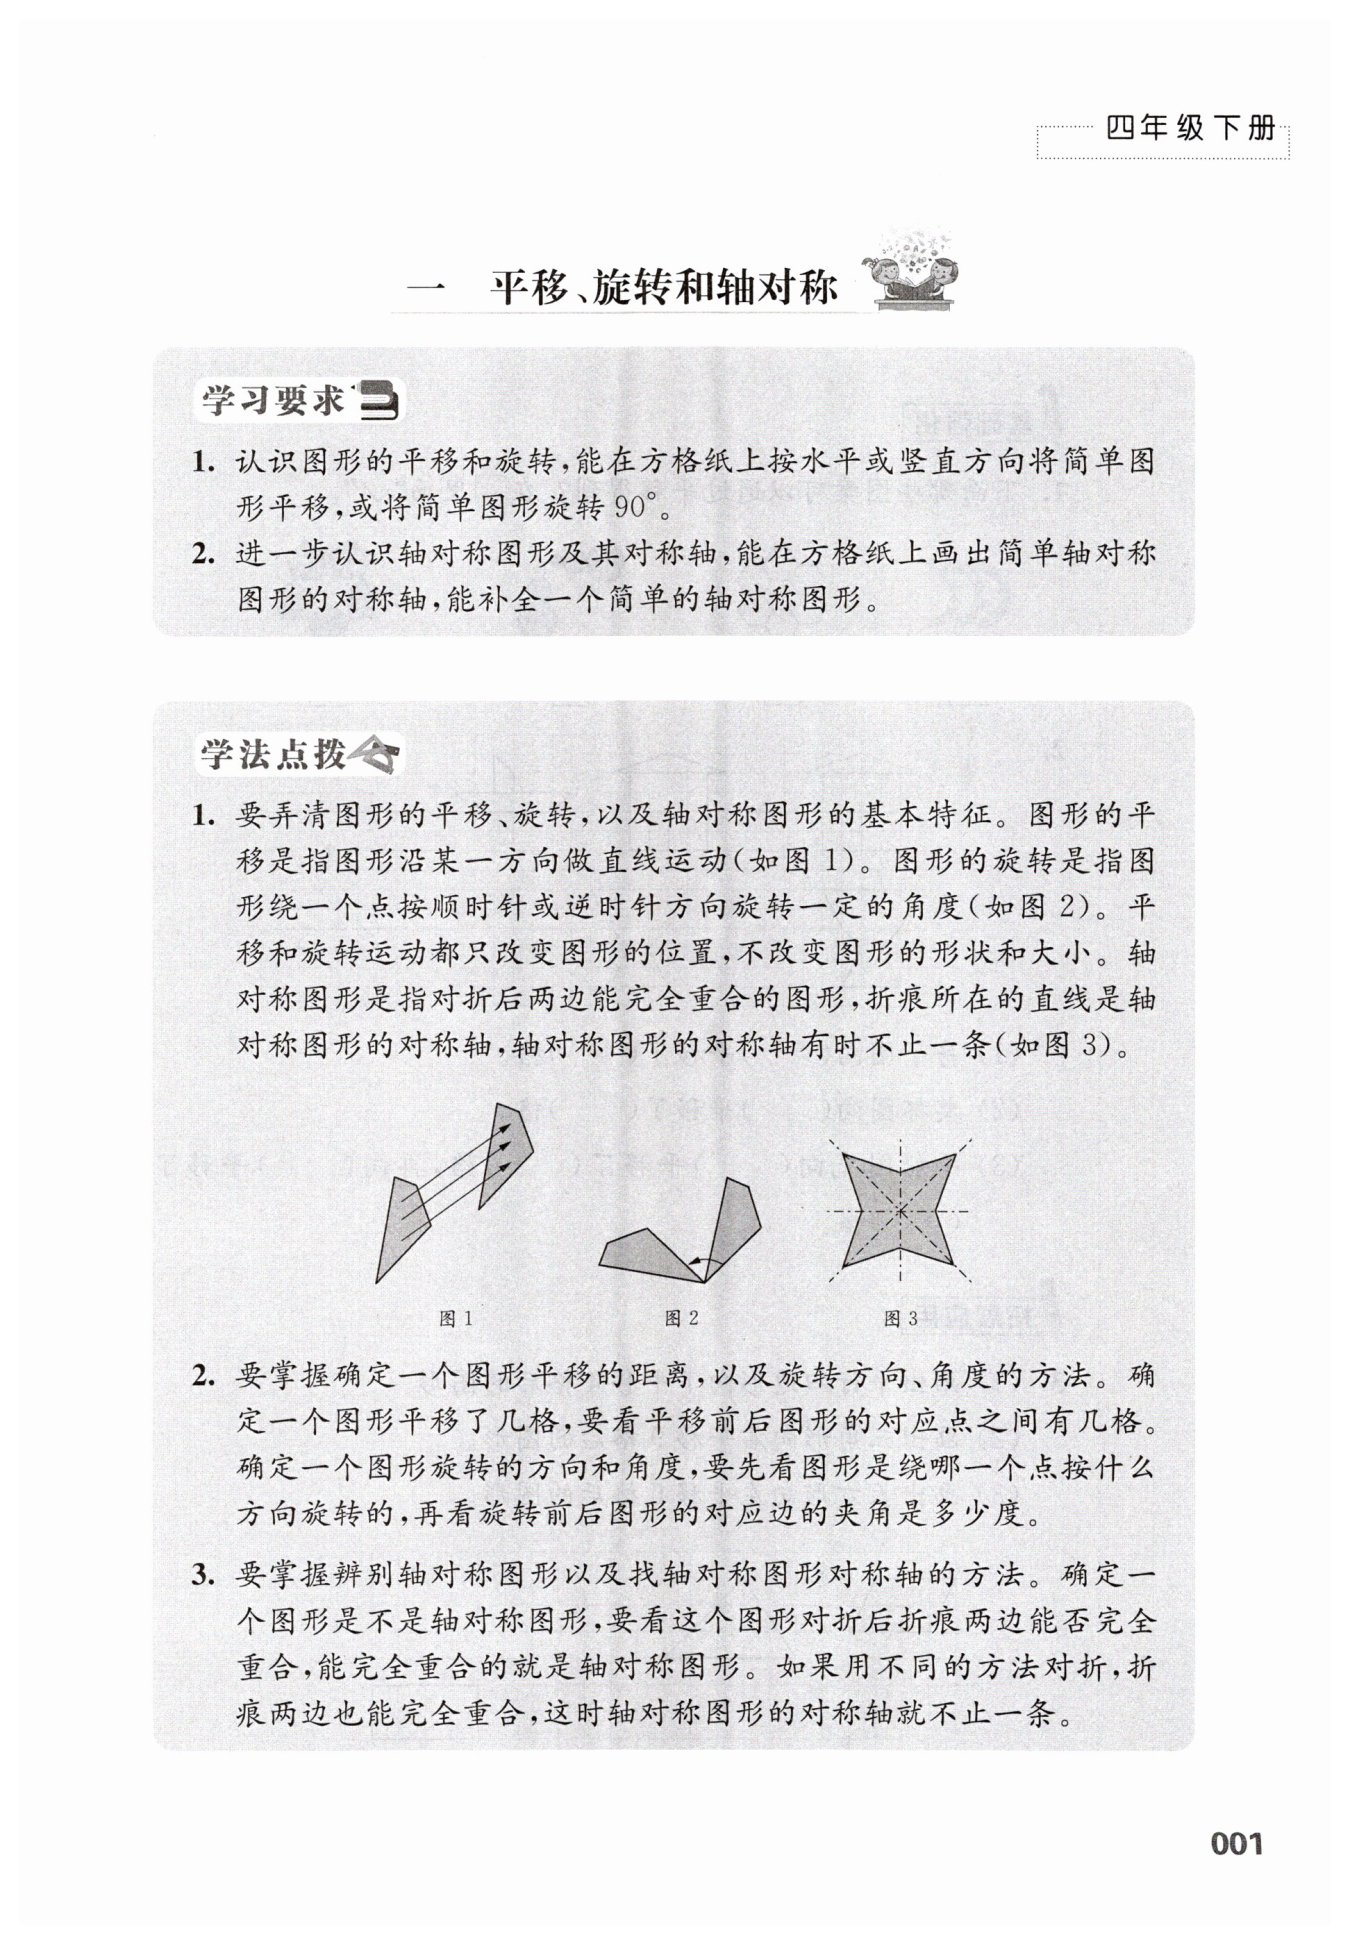 四年级下册
一 平移、旋转和轴对称
学习要求
1. 认识图形的平移和旋转,能在方格纸上按水平或竖直方向将简单图
形平移,或将简单图形旋转90°。
2. 进一步认识轴对称图形及其对称轴,能在方格纸上画出简单轴对称
图形的对称轴,能补全一个简单的轴对称图形。
学法点拨
1. 要弄清图形的平移、旋转,以及轴对称图形的基本特征。图形的平
移是指图形沿某一方向做直线运动(如图 1)。图形的旋转是指图
形绕一个点按顺时针或逆时针方向旋转一定的角度(如图 2)。平
移和旋转运动都只改变图形的位置,不改变图形的形状和大小。轴
对称图形是指对折后两边能完全重合的图形,折痕所在的直线是轴
对称图形的对称轴,轴对称图形的对称轴有时不止一条(如图 3)。
图 1 图 2 图 3
2. 要掌握确定一个图形平移的距离,以及旋转方向、角度的方法。确
定一个图形平移了几格,要看平移前后图形的对应点之间有几格。
确定一个图形旋转的方向和角度,要先看图形是绕哪一个点按什么
方向旋转的,再看旋转前后图形的对应边的夹角是多少度。
3. 要掌握辨别轴对称图形以及找轴对称图形对称轴的方法。确定一
个图形是不是轴对称图形,要看这个图形对折后折痕两边能否完全
重合,能完全重合的就是轴对称图形。如果用不同的方法对折,折
痕两边也能完全重合,这时轴对称图形的对称轴就不止一条。
001